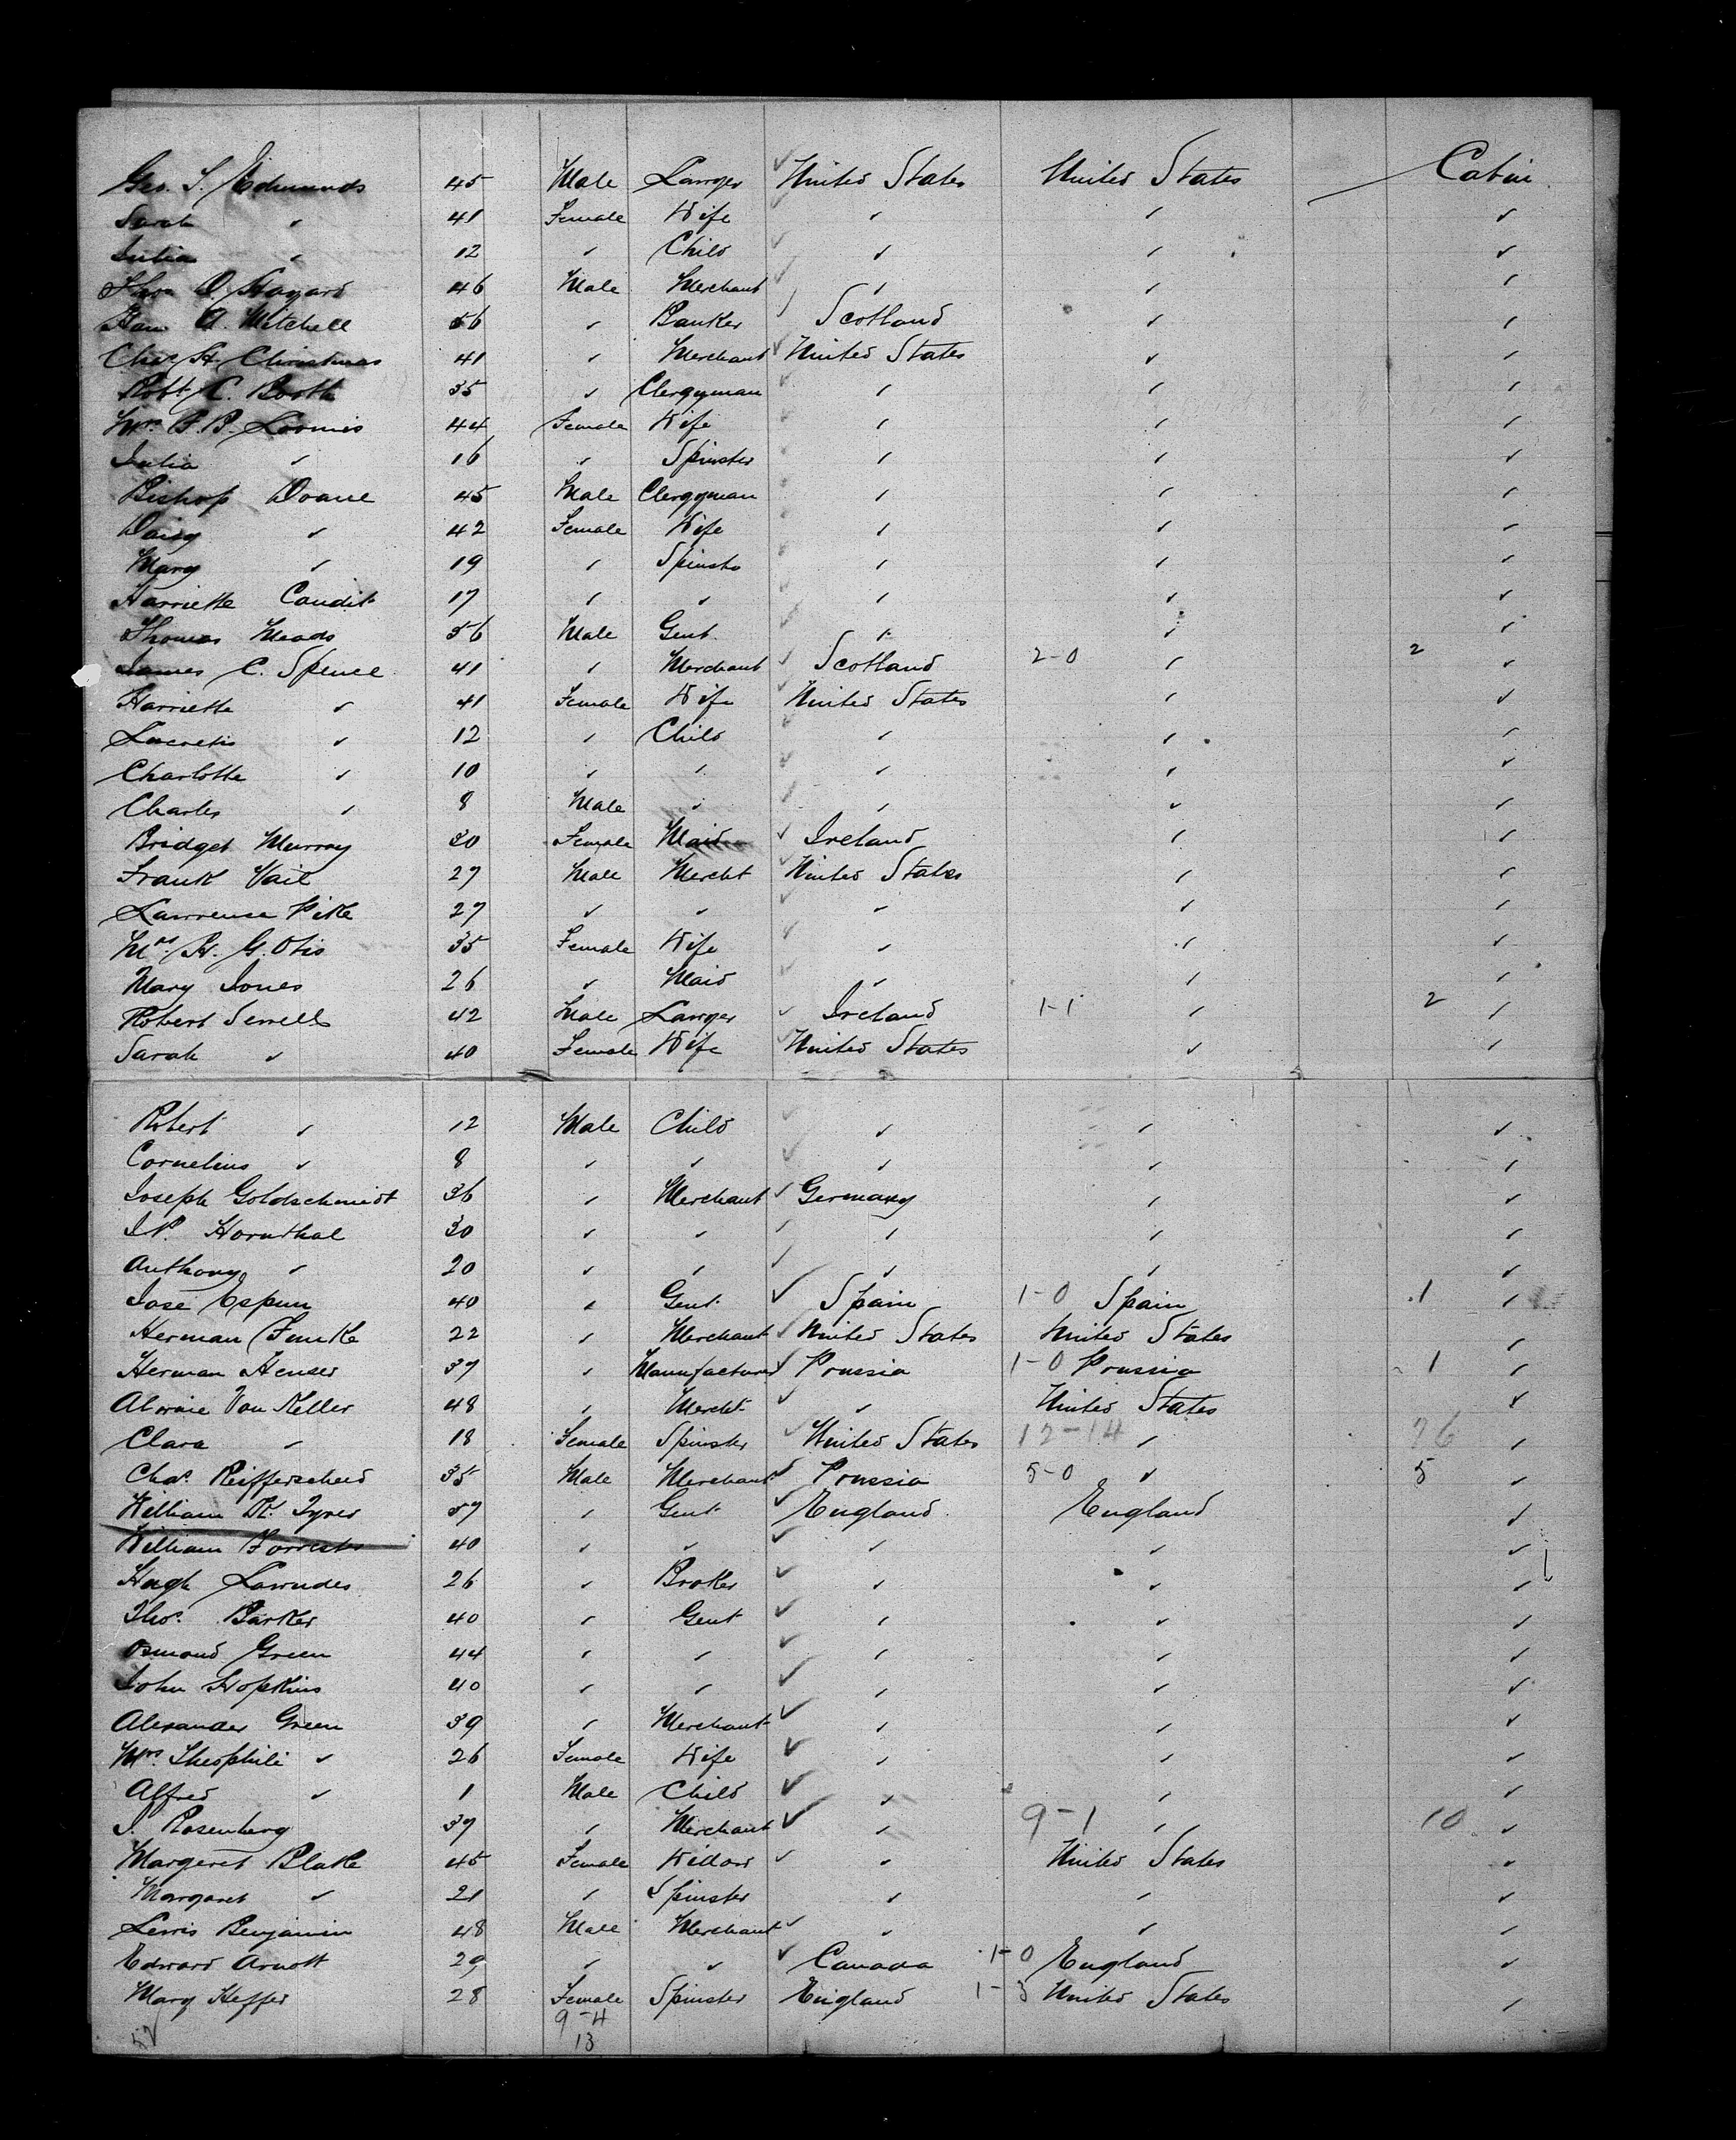 Geo. S. Edmunds 45 Male Lawyer ✓ United States United States Cabin
Sarah " 41 Female Wife " " "
Julia " 12 " Child " " "
Thos O. Hazard 46 Male Merchant " " "
A. Mitchell 56 " Banker Scotland " "
Chas H. Christmas 41 " Merchant United States " "
Robt C. Booth 35 " Clergyman " " "
Mrs B. B. Loomis 44 Female Wife " " "
Julia " 16 " Spinster " " "
Bishop Doane 45 Male Clergyman " " "
Daisy " 42 Female Wife " " "
Mary " 19 " Spinstr " " "
Harriette Condit 17 " " " " "
Thomas Meads 56 Male Gent " " "
James C. Spence 41 " Merchant Scotland 2-0 " 2 "
Harriette " 41 Female Wife United States " "
Lucretia " 12 " Child " " "
Charlotte " 10 " " " " "
Charles " 8 Male " " " "
Bridget Murray 30 Female Maid Ireland " "
Frank Vail 27 Male Mercht United States " "
Lawrence Pike 27 " " " " "
Mrs H. G. Otis 35 Female Wife " " "
Mary Jones 26 " Maid " " "
Robert Sewell 42 Male Lawyer Ireland 1-1 " 2 "
Sarah " 40 Female Wife United States " "
Robert " 12 Male Child " " "
Cornelius " 8 " " " " "
Joseph Goldschmidt 36 " Merchant Germany " "
Hornthal 30 " " " " "
Anthony " 20 " " " " "
José Espun 40 " Gent Spain 1-0 Spain 1 "
Herman Funke 22 " Merchant United States United States "
Herman Heuser 39 " Manufacturer Prussia 1-0 Prussia 1 "
Von Keller 48 " Mercht " United States "
Clara " 18 Female Spinster United States 12-14 " 26 "
Chas. Reifferscheid 35 Male Merchant Prussia 5-0 " 5 "
William K. Tyrer 57 " Gent England England "
William Forrester 40 " " " " "
Hugh Lowndes 26 " Broker " " "
Thos. Barker 40 " Gent " " "
Osmond Green 44 " " " " "
John Hopkins 40 " " " " "
Alexander Green 39 " Merchant " " "
Mrs Theophili " 26 Female Wife " " "
Alfred " 1 Male Child " " "
J. Rosenberg 39 " Merchant " 9-1 " 10 "
Margeret Blake 45 Female Widow " United States "
Margaret " 21 " Spinster " " "
Lewis Benjamin 48 Male Merchant " " "
Edward Arnott 29 " " Canada 1-0 England "
Mary Heffer 28 Female Spinster England 1-3 United States "
52 9-4
13